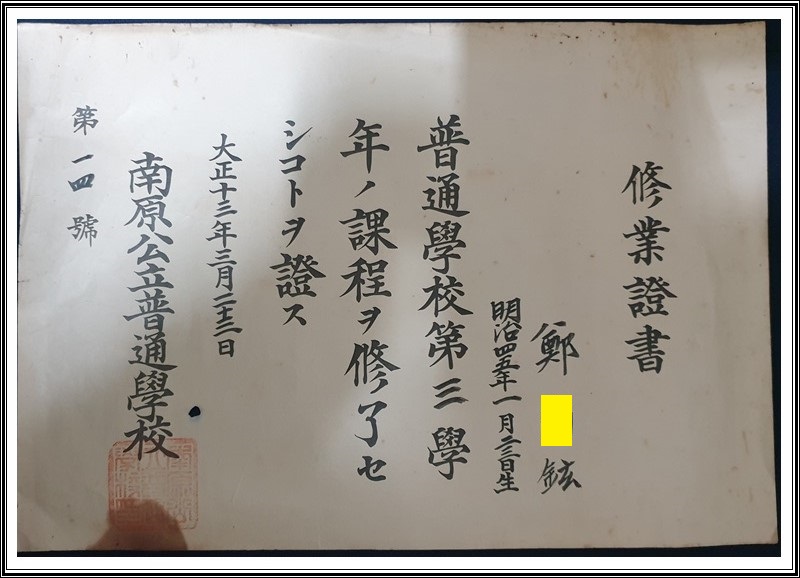 修業證書
鄭 鉉
明治四五年一月二三日生
普通學校第三學
年ノ課程ヲ修了セ
シコトヲ證ス
大正十三年三月二十三日
南原公立普通學校
第一四號